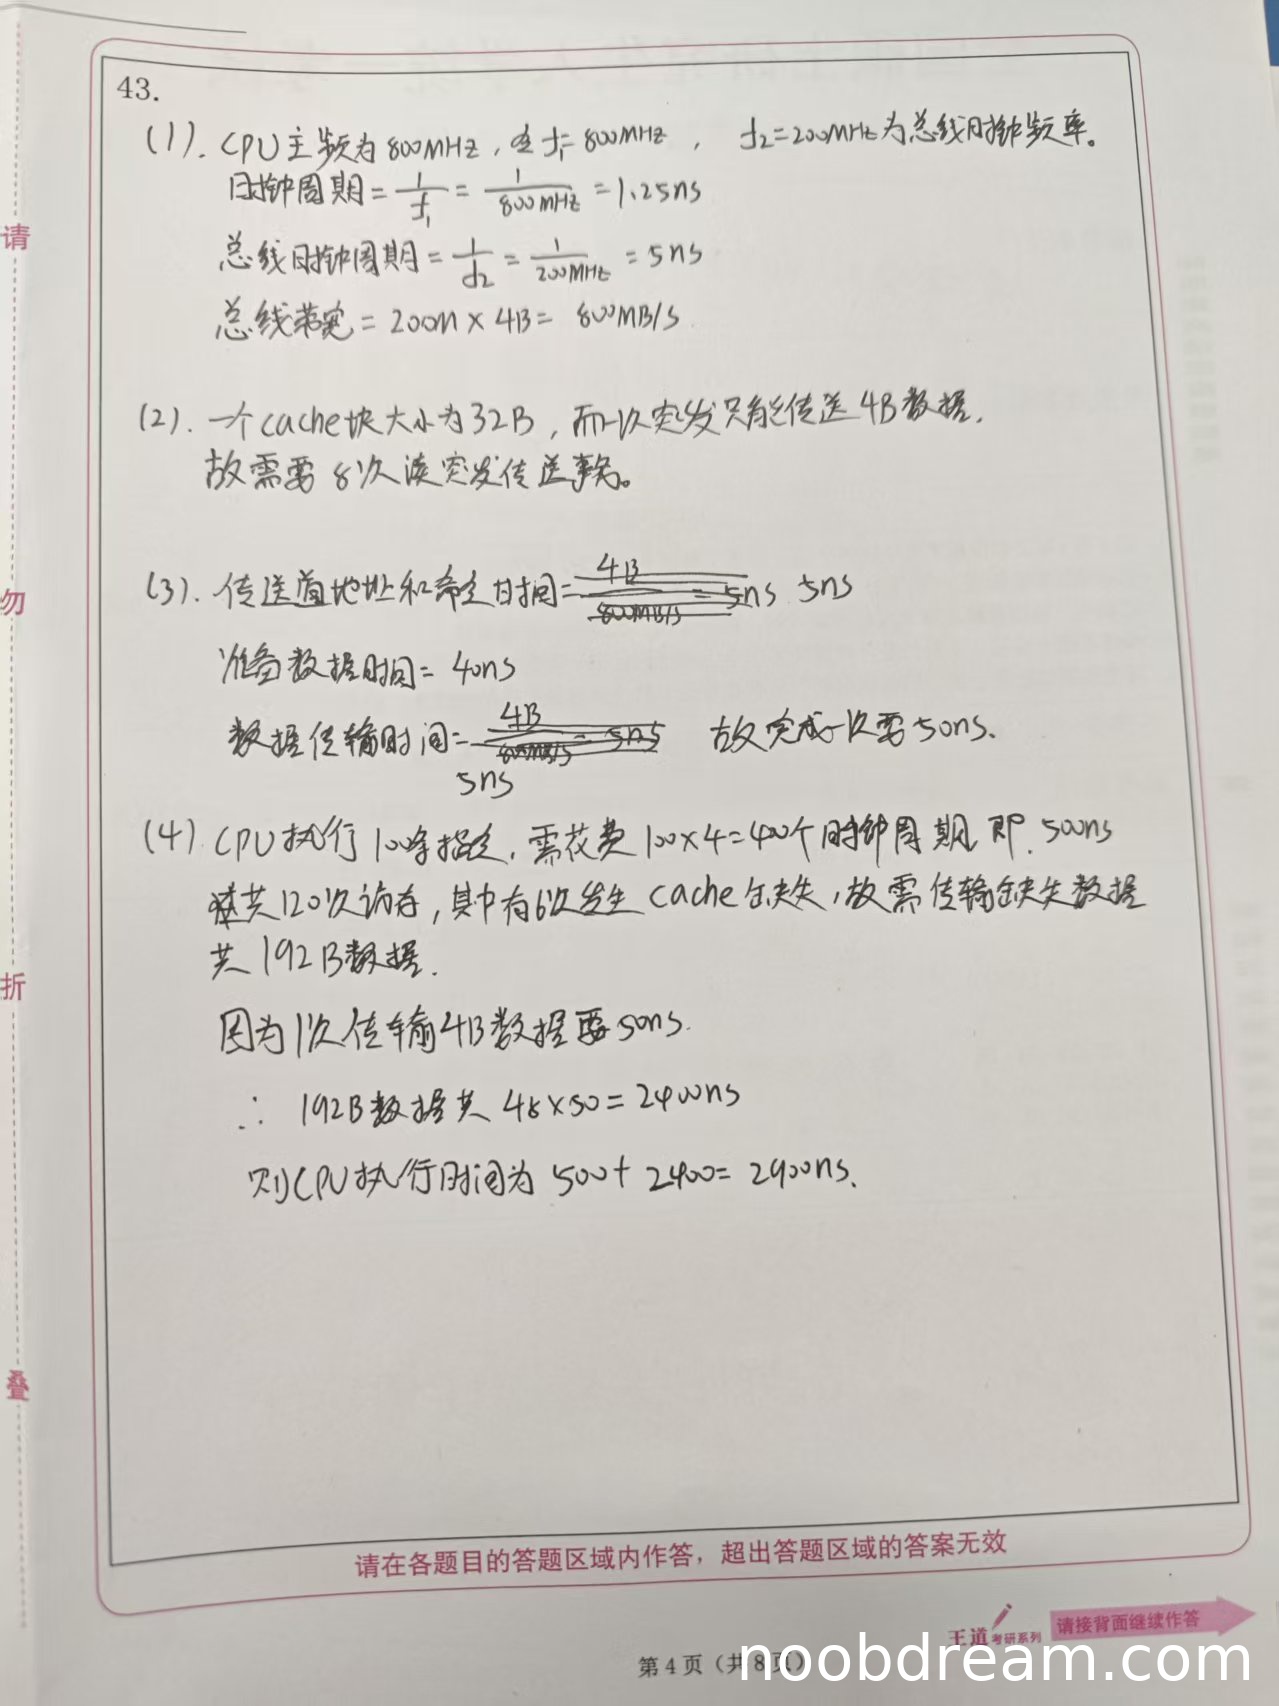 43.
(1). CPU主频为800MHz，令f₁=800MHz， f₂=200MHz为总线时钟频率。
时钟周期=1/f₁=1/800MHz=1.25ns
总线时钟周期=1/f₂=1/200MHz=5ns
总线带宽=200M×4B=800MB/S
(2). 一个cache块大小为32B，而一次突发只能传送4B数据.
故需要8次读突发传送事务。
(3). 传送首地址和命令时间=4B/800MB/S=5ns 5ns
准备数据时间=40ns
数据传输时间=4B/800MB/S=5ns 故完成一次要50ns.
5ns
(4) CPU执行100条指令，需花费100×4=400个时钟周期，即.500ns
共120次访存，其中有6次发生cache缺失，故需传输缺失数据
共192B数据.
因为1次传输4B数据要50ns.
∴ 192B数据共48×50=2400ns
则CPU执行时间为500+2400=2900ns.
请
勿
折
叠
请在各题目的答题区域内作答，超出答题区域的答案无效
王道考研系列
请接背面继续作答
第4页（共8页）
noobdream.com